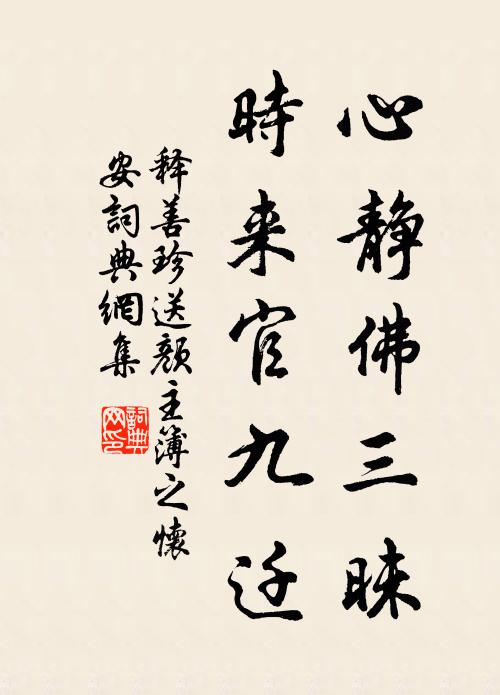 心静佛三昧
時来官九迁
释善珍送颜主簿之懷
安詞典網集
詞典
网印